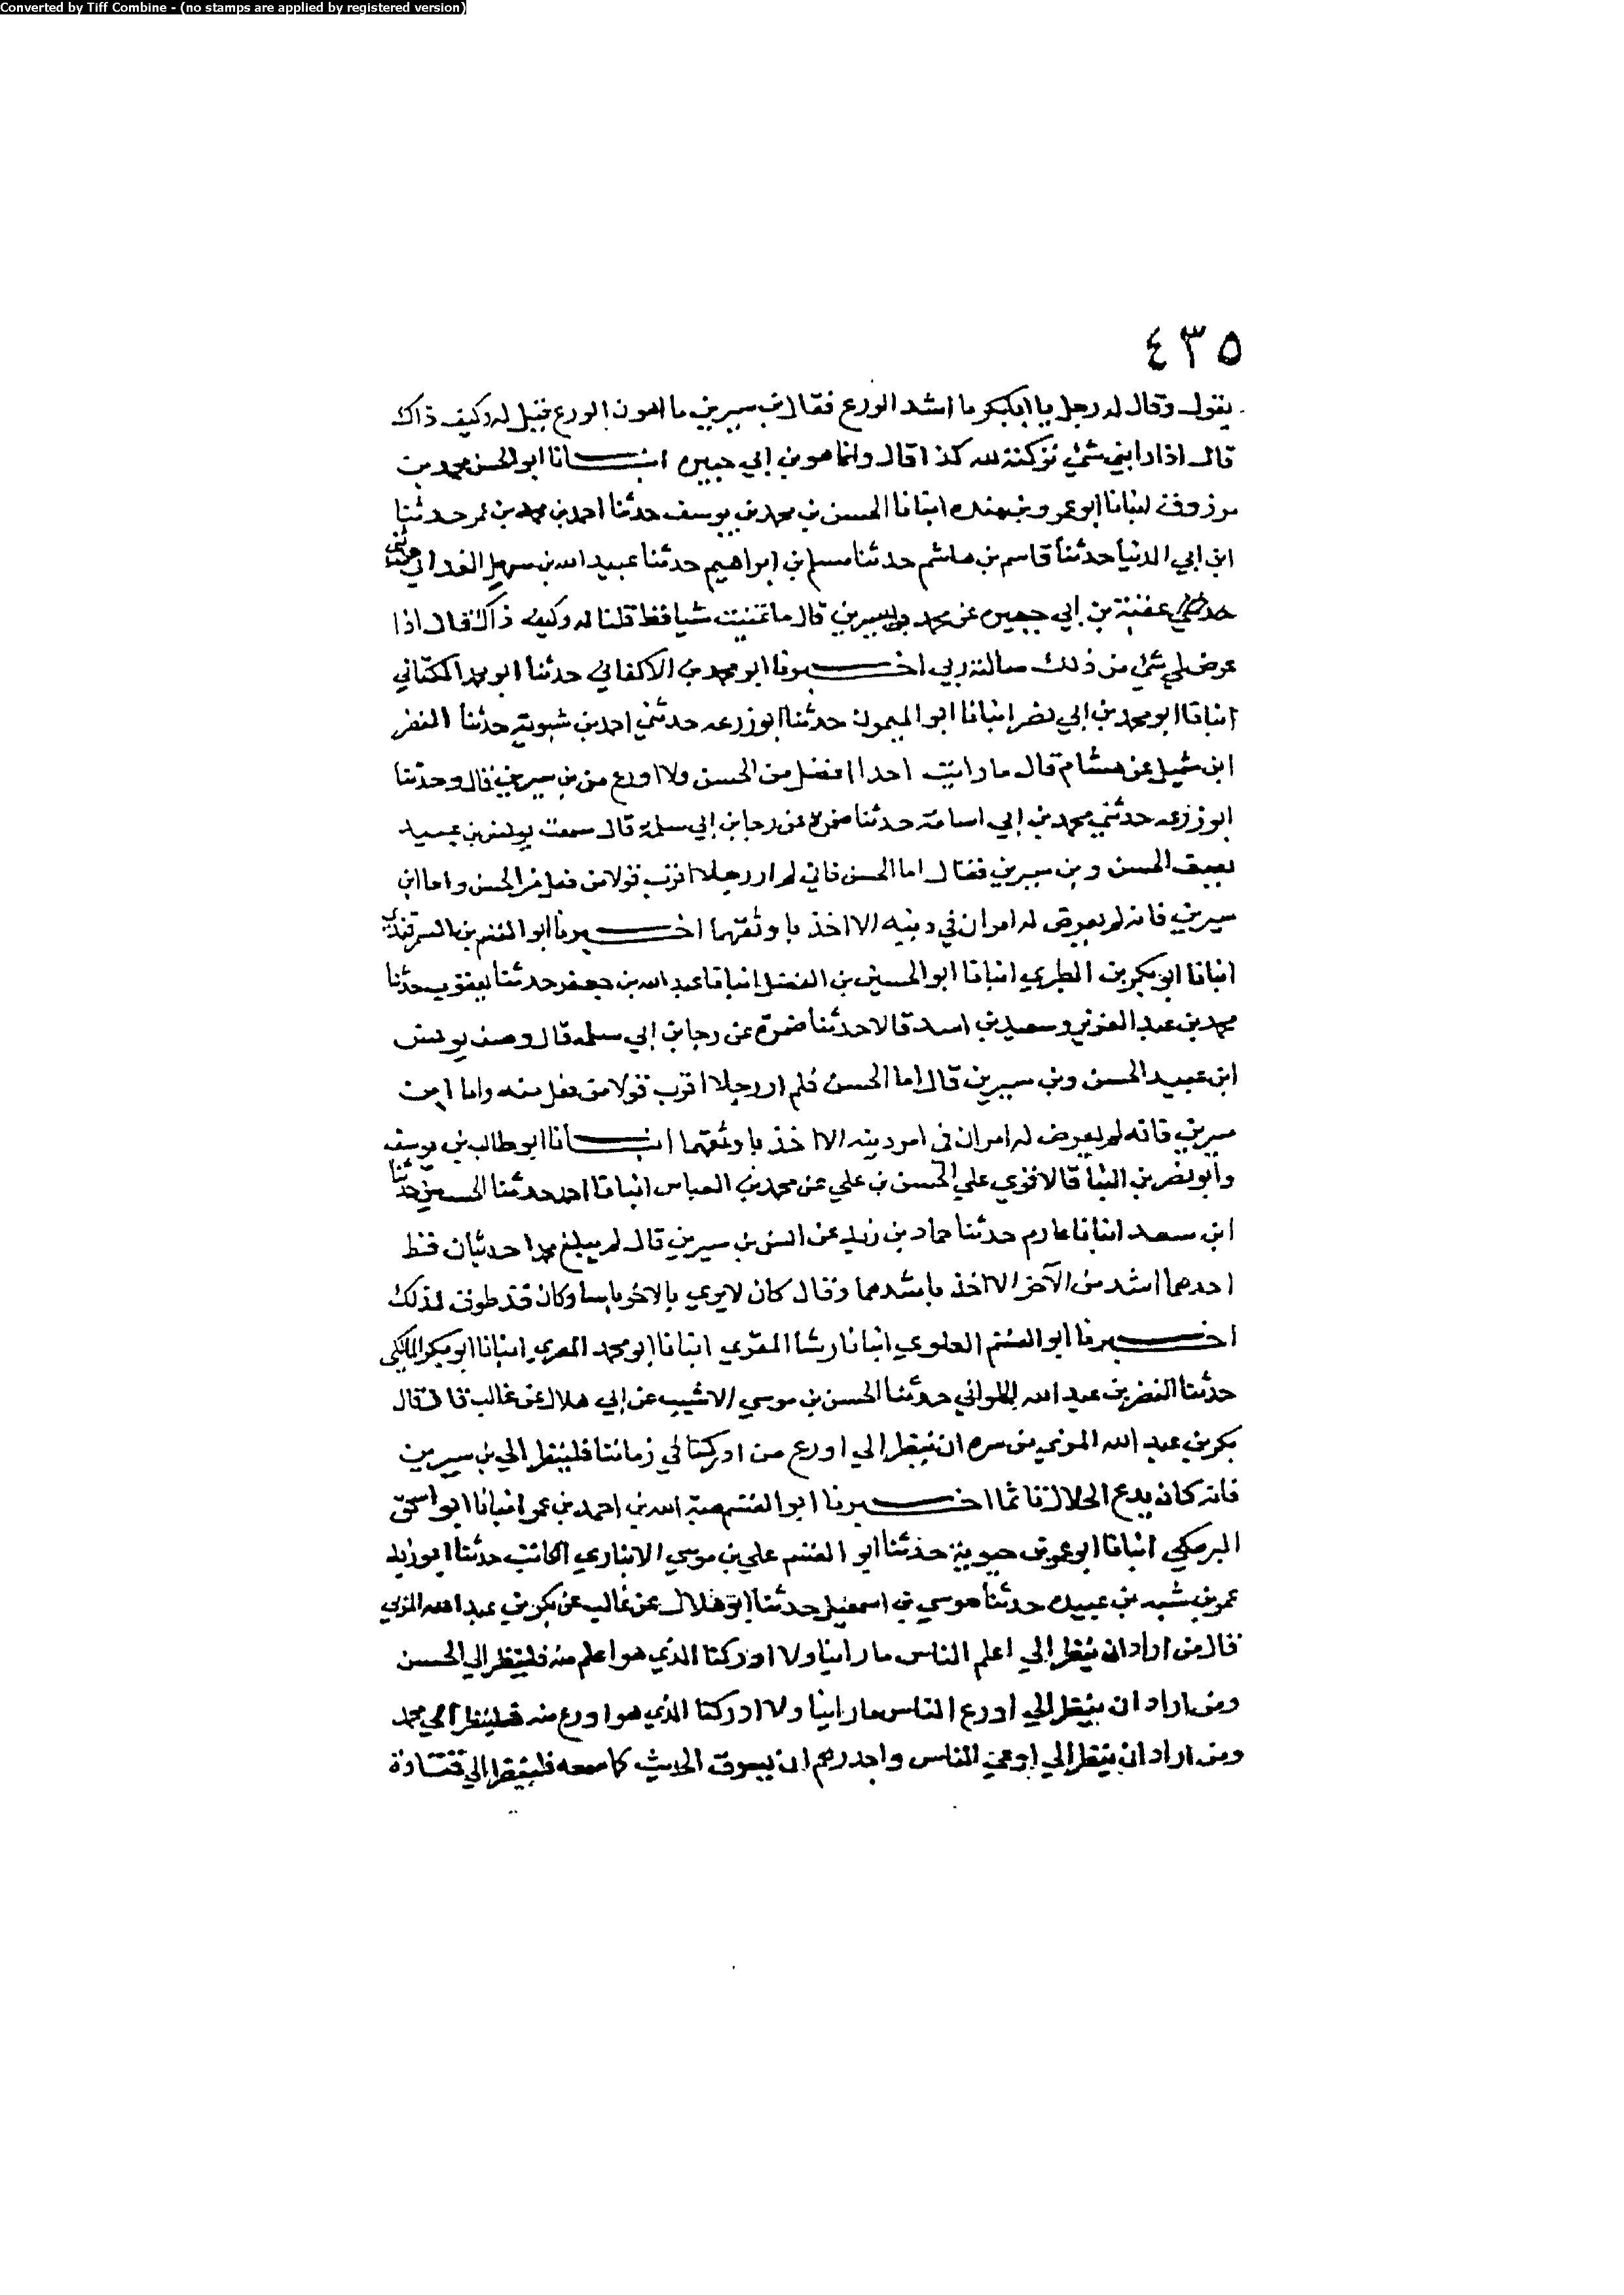 Converted by Tiff Combine - (no stamps are applied by registered version)
٤٣٥
يقول وقال له رجل يا ابا بكر ما اشد الورع فقال بن سيرين ما اهون الورع فقيل له وكيف ذاك
قال اذا رابني شيء تركته لله كذا قال وانما هو بن ابي انبـــانا ابو الحسن محمد بن
مرزوق انبانا ابو عمرو بن منده انبانا الحسن بن محمد بن يوسف حدثنا احمد بن محمد بن عمر حدثنا
ابن ابي الدنيا حدثنا قاسم بن هاشم حدثنا مسلم بن ابراهيم حدثنا عبيد الله بن سهيل الغداني
عقبة بن ابي عن محمد بن سيرين قال ما تمنيت شيا قط قلنا له وكيف ذاك قال اذا
عرض لي شي من ذلك سالته ربي اخـــبرنا ابو محمد بن الاكفاني حدثنا ابو محمد الكتاني
انبانا ابو محمد بن ابي نصر انبانا ابو الميمون حدثنا ابو زرعه حدثني احمد بن شبويه حدثنا النضر
ابن شميل عن هشام قال ما رايت احدا افضل من الحسن ولا اورع من بن سيرين قال وحدثنا
ابو زرعه حدثني محمد بن ابي اسامة حدثنا ضمرة عن رجا بن ابي سلمة قال سمعت يونس بن عبيد
يصف الحسن وبن سيرين فقال اما الحسن فاني لم ار رجلا اقرب قولا من فعل من الحسن واما ابن
سيرين فانه لم يعرض له امران في دينه الا اخذ باوثقهما اخـــبرنا ابو القسم بن السمرقندي
انبانا ابو بكر بن الطبري انبانا ابو الحسين بن الفضل انبانا عبد الله بن جعفر حدثنا يعقوب حدثنا
محمد بن عبد العزيز وسعيد بن اسد قالا حدثنا ضمرة عن رجا بن ابي سلمه قال وصف يونس
ابن عبيد الحسن وبن سيرين قال اما الحسن فلم ار رجلا اقرب قولا من فعل منه واما ابن
سيرين فانه لم يعرض له امران في امر دينه الا اخذ باوثقهما انبـــانا ابو طالب بن يوسف
وابو نصر بن البنا قالا قري علي الحسن بن علي عن محمد بن العباس انبانا احمد حدثنا الحسين حدثنا
ابن سعد انبانا عارم حدثنا حماد بن زيد عن انس بن سيرين قال لم يبلغ محمدا حديثان قط
احدهما اشد من الآخر الا اخذ باشدهما وقال كان لا يري بالاخر باسا وكان قد طوق لذلك
اخـــبرنا ابو القسم العلوي انبانا رشا المقري انبانا ابو محمد المصري انبانا ابو بكر المالكي
حدثنا النضر بن عبد الله الحلواني حدثنا الحسن بن موسي الاشيب عن ابي هلال عن غالب قال قال
بكر بن عبد الله المزني من سره ان ينظر الي اورع من ادركنا في زماننا فلينظر الي بن سيرين
فانه كان يدع الحلال تاثما اخـــبرنا ابو القسم هبة الله بن احمد بن عمر انبانا ابو اسحق
البرمكي انبانا ابو عمر بن حيوية حدثنا ابو القسم علي بن موسي الانباري الكاتب حدثنا ابو زيد
عمر بن شبه بن عبيده حدثنا موسي بن اسمعيل حدثنا ابو هلال عن غالب عن بكر بن عبد الله المزني
قال من اراد ان ينظر الي اعلم الناس ما راينا ولا ادركنا الذي هو اعلم منه فلينظر الي الحسن
ومن اراد ان ينظر الي اورع الناس ما راينا ولا ادركنا الذي هو اورع منه فلينظر الي محمد
ومن اراد ان ينظر الي اوعي الناس واجدرهم ان يسوق الحديث كما سمعه فلينظر الي قتادة